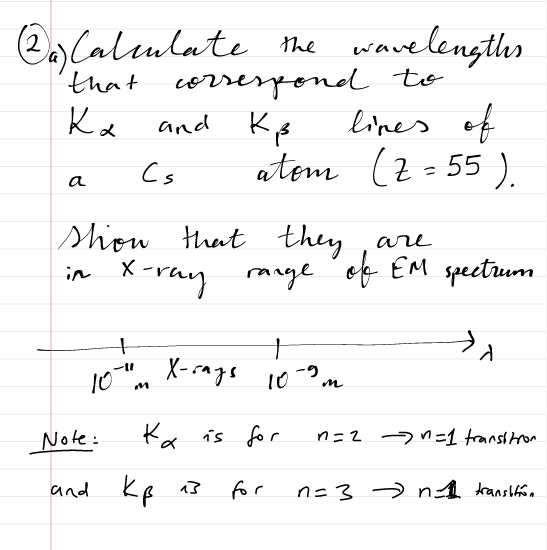 ② a) Calculate the wavelengths
that correspond to
Kα and Kβ lines of
a Cs atom (Z = 55).
Show that they are
in X-ray range of EM spectrum
10⁻¹¹ m X-rays 10⁻⁹ m λ
Note: Kα is for n=2 → n=1 transition
and Kβ is for n=3 → n=1 transition